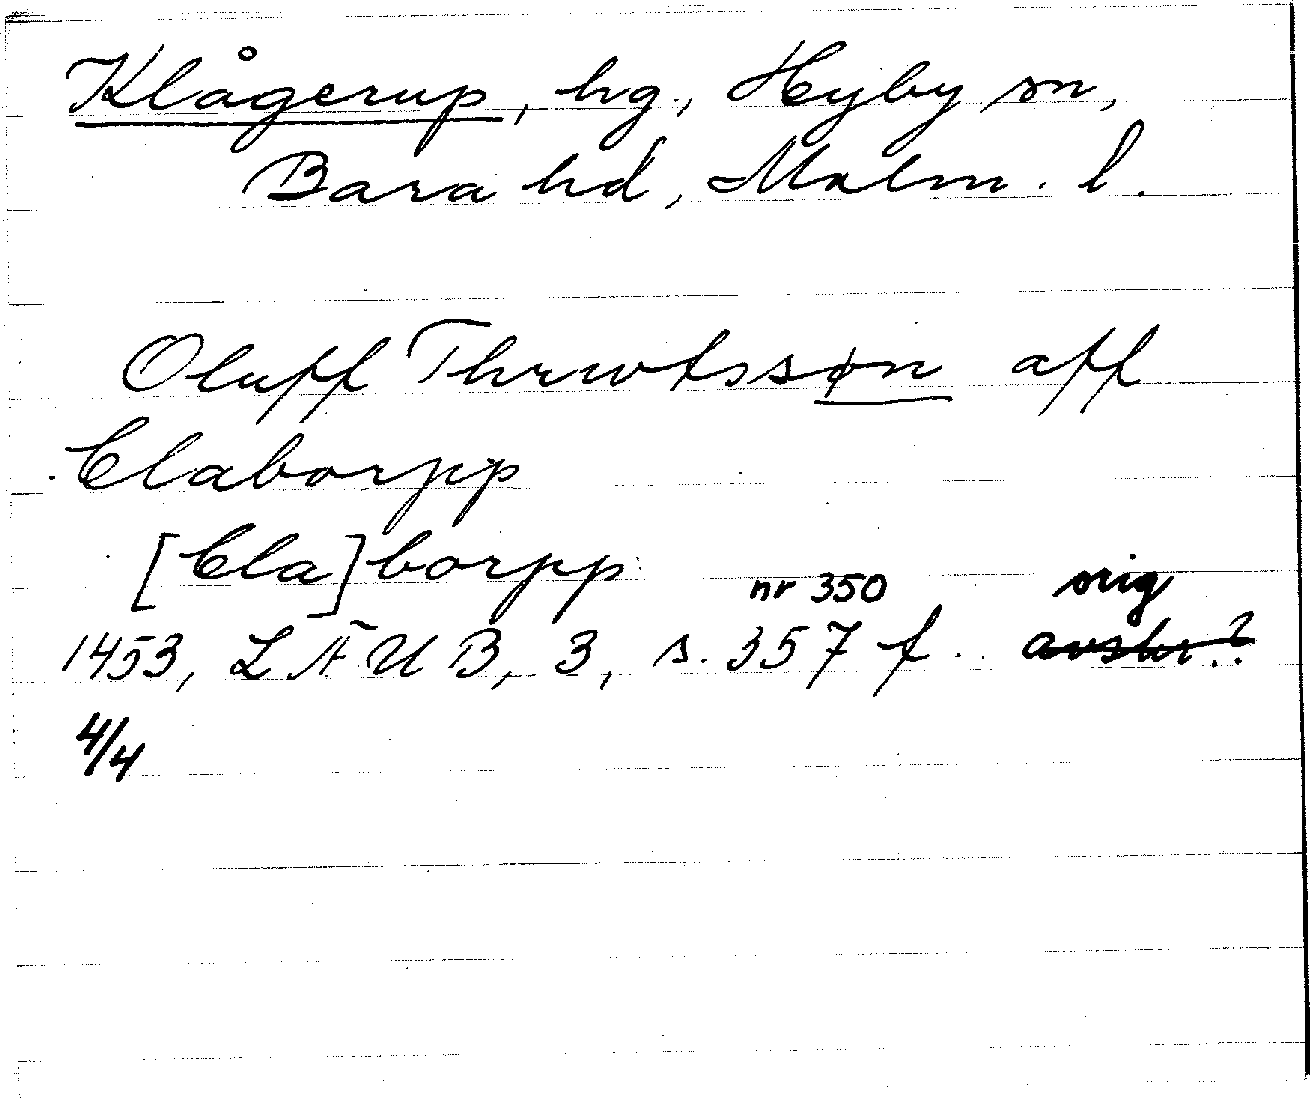 Klågerup, hg., Hyby sn,
Bara hd, Malm. l.
Oluff Thrwtssøn aff
Claborpp
[Cla]borpp
nr 350 orig
1453, LÄUB, 3, s. 357 f. avskr.?
4/4